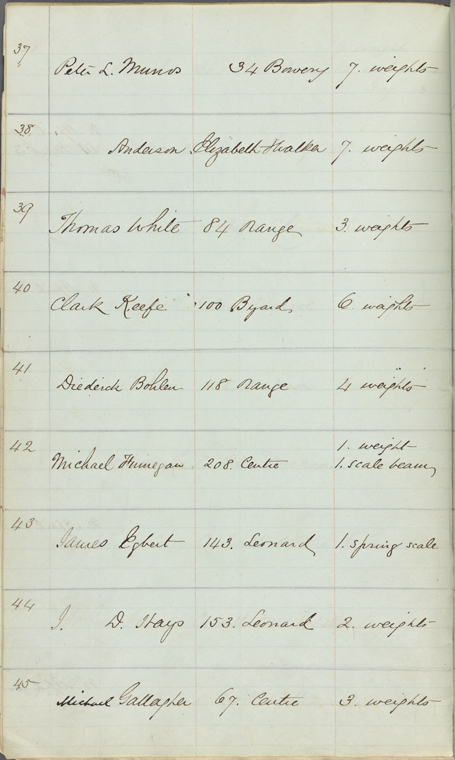 37 Peter L. Munos 34 Bowery 7. weights
38 Anderson Elizabeth & Walker 7. weights
39 Thomas White 84 Orange 3. weights
40 Clark Keefe 100 Byard 6 weights
41 Diederick Bohlen 118 Orange 4 weights
1. weight
42 Michael Finnegan 208. Centre 1. scale beam
43 James Egbert 143. Leonard 1. spring scale
44 J. D. Hays 153. Leonard 2. weights
45 Michael Gallagher 67. Centre 3. weights